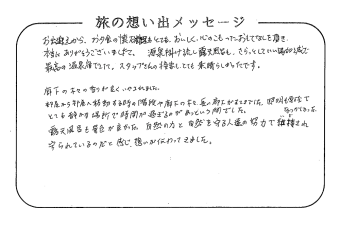 旅の想い出メッセージ
お出迎えから、お夕食の懐石料理もとても、おいしく、心のこもったおもてなしを頂き、
本当にありがとうございました。源泉掛け流し露天風呂も、さらっとしていい
最高の温泉宿でした。スタッフさんの接客しても素晴らしかったです。
廊下の木々の香りが良くいやされました。
部屋から部屋へ移動する時の階段や廊下の
とても静かな場所で時間が過ぎるのがあっという間でした。
露天風呂も景色が良かった。自然の力と自然を守る人達の努力で維持され
守られているのだと感じ想いが伝わってきました。